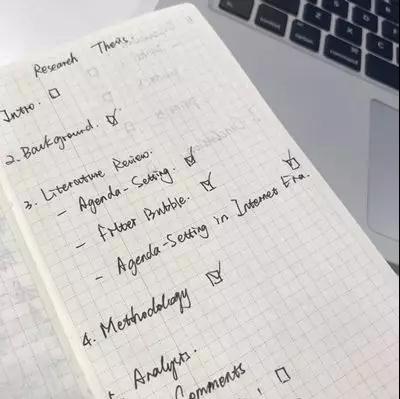 Research Thesis.
Intro.
2. Background.
3. Literature Review.
- Agenda-Setting.
- Filter Bubble.
- Agenda-Setting in Internet Era.
4. Methodology
Analysis.
Comments